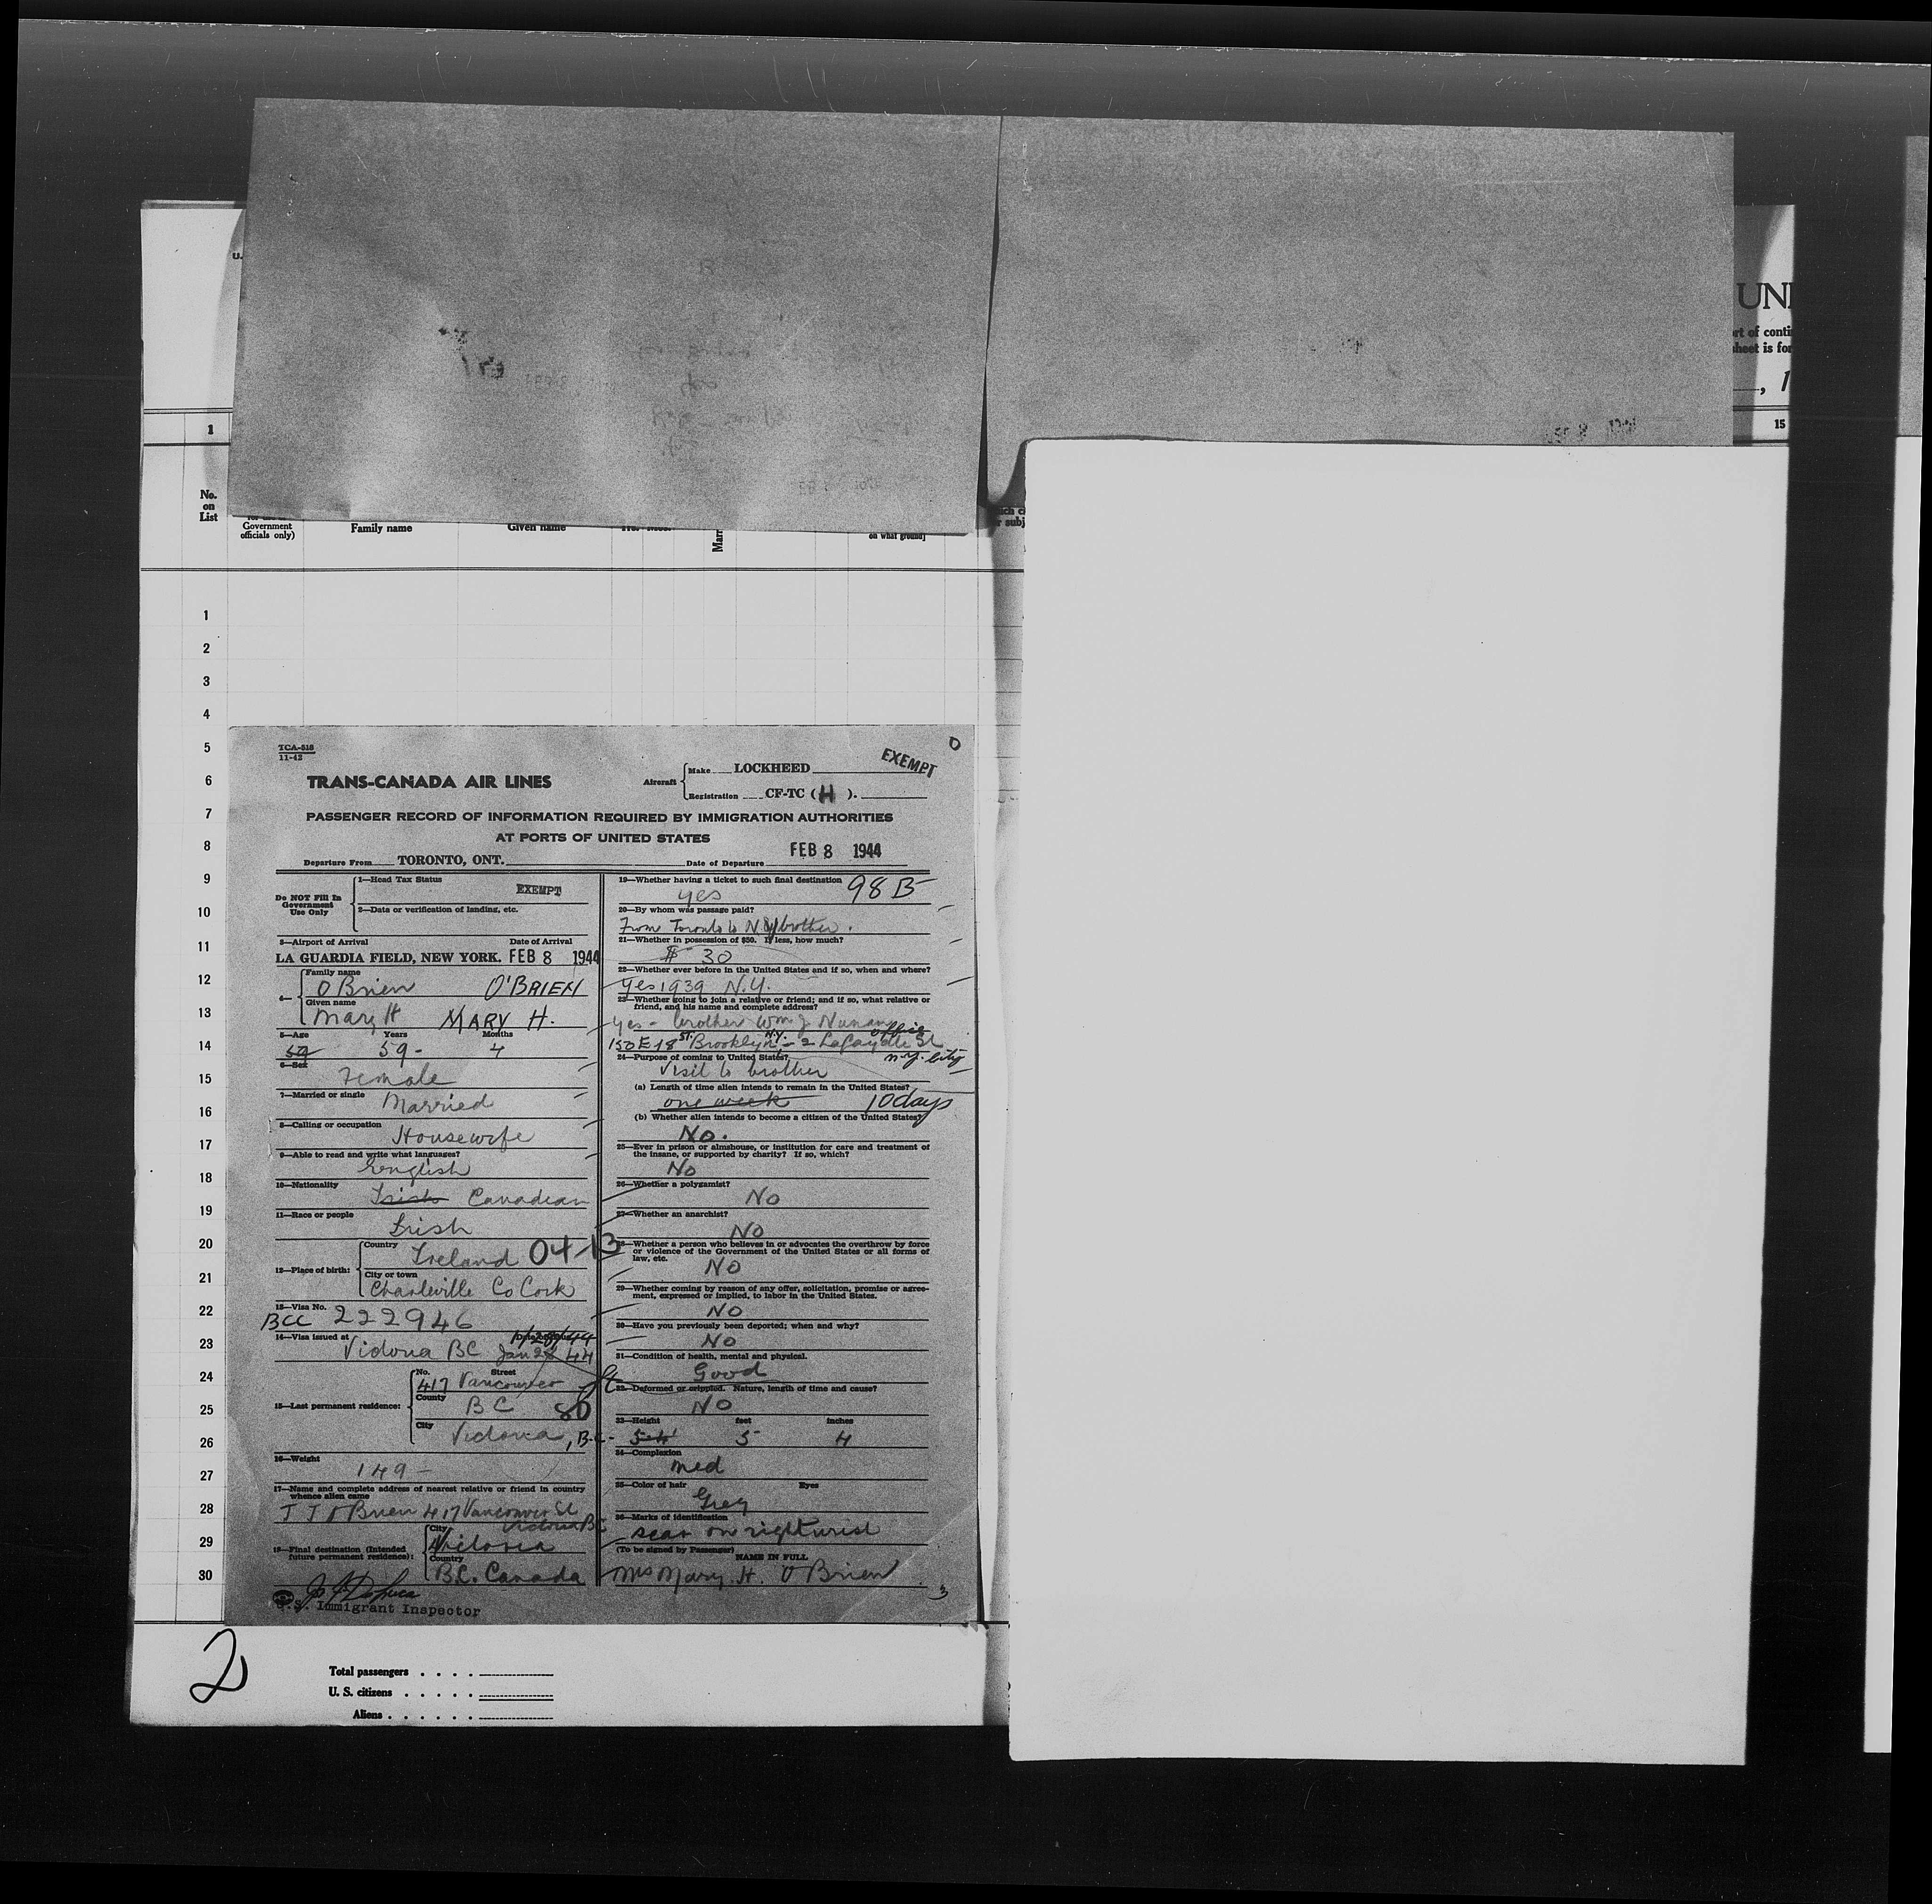 U.
UNI
rt of conti
sheet is for
, 1
1
15
No.
on
List
Government
officials only)
Family name
Given name
Marr
on what ground]
1
2
3
4
5
6
7
8
9
10
11
12
13
14
15
16
17
18
19
20
21
22
23
24
25
26
27
28
29
30
TCA-518
11-42
EXEMPT
O
TRANS-CANADA AIR LINES
Aircraft
Make LOCKHEED
Registration CF-TC (H).
PASSENGER RECORD OF INFORMATION REQUIRED BY IMMIGRATION AUTHORITIES
AT PORTS OF UNITED STATES
Departure From TORONTO, ONT. Date of Departure FEB 8 1944
Do NOT Fill In
Government
Use Only
1—Head Tax Status
EXEMPT
2—Data or verification of landing, etc.
3—Airport of Arrival Date of Arrival
LA GUARDIA FIELD, NEW YORK. FEB 8 1944
4—
Family name
O Brien O'BRIEN
Given name
Mary H MARY H.
5—Age Years Months
59 59 - 4
6—Sex
Female
7—Married or single
Married
8—Calling or occupation
Housewife
9—Able to read and write what languages?
English
10—Nationality
Irish Canadian
11—Race or people
Irish
12—Place of birth:
Country
Ireland 04-13
City or town
Charleville Co Cork
13—Visa No.
BCC 222946
14—Visa issued at
1/28/44
Victoria BC Jan 28 44
15—Last permanent residence:
No. Street
417 Vancouver St
County
BC 80
City
Victoria, B.C.
16—Weight
149 -
17—Name and complete address of nearest relative or friend in country
whence alien came
J J O Brien 417 Vancouver St
Victoria BC
18—Final destination (Intended
future permanent residence):
City
Victoria
Country
B.C. Canada
U.S. Immigrant Inspector
19—Whether having a ticket to such final destination
yes 98 B
20—By whom was passage paid?
From Toronto to N.Y brother.
21—Whether in possession of $50. If less, how much?
$ 30
22—Whether ever before in the United States and if so, when and where?
Yes 1939 N.Y.
23—Whether going to join a relative or friend; and if so, what relative or
friend, and his name and complete address?
Yes - brother Wm J Nunan
office
150 E 18 St Brooklyn N.Y. - 2 Lafayette St
N.Y. City
24—Purpose of coming to United States?
Visit to brother
(a) Length of time alien intends to remain in the United States?
one week 10 days
(b) Whether alien intends to become a citizen of the United States?
No.
25—Ever in prison or almshouse, or institution for care and treatment of
the insane, or supported by charity? If so, which?
No
26—Whether a polygamist?
No
27—Whether an anarchist?
No
28—Whether a person who believes in or advocates the overthrow by force
or violence of the Government of the United States or all forms of
law, etc.
No
29—Whether coming by reason of any offer, solicitation, promise or agree-
ment, expressed or implied, to labor in the United States.
No
30—Have you previously been deported; when and why?
No
31—Condition of health, mental and physical.
Good
32—Deformed or crippled. Nature, length of time and cause?
No
33—Height feet inches
5-4 5 4
34—Complexion
Med
35—Color of hair Eyes
Grey
36—Marks of identification
scar on right wrist
(To be signed by Passenger)
NAME IN FULL
Mrs Mary H. O Brien
3
2
Total passengers
U. S. citizens
Aliens